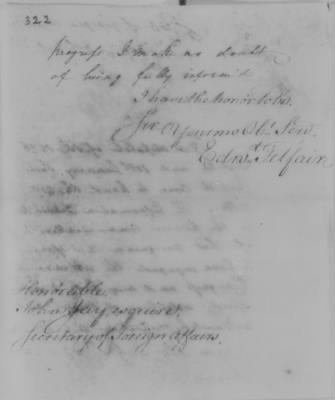 322
progress I make no doubt
of being fully inform'd
I have the honor to be,
Sir
Your mo Obt Serv.
Edwd Telfair
Honorable
John Jay, esquire,
Secretary of Foreign Affairs.